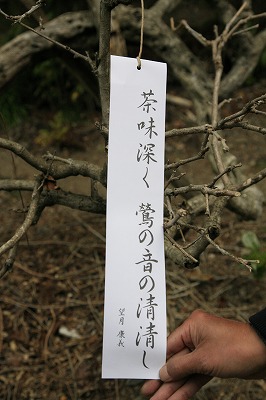 茶味深く 鶯の音の清清し
望月 康義